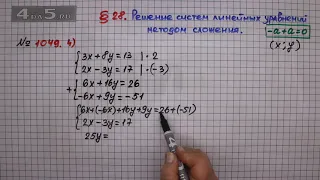 4 на 5 .ru
§ 28. Решение систем линейных уравнений
методом сложения.
-a+a=0
(x; y)
№ 1049. 4)
3x + 8y = 13 | · 2
2x - 3y = 17 | · (-3)
+ 6x + 16y = 26
-6x + 9y = -51
6x+(-6x)+16y+9y=26+(-51)
2x - 3y = 17
25y =